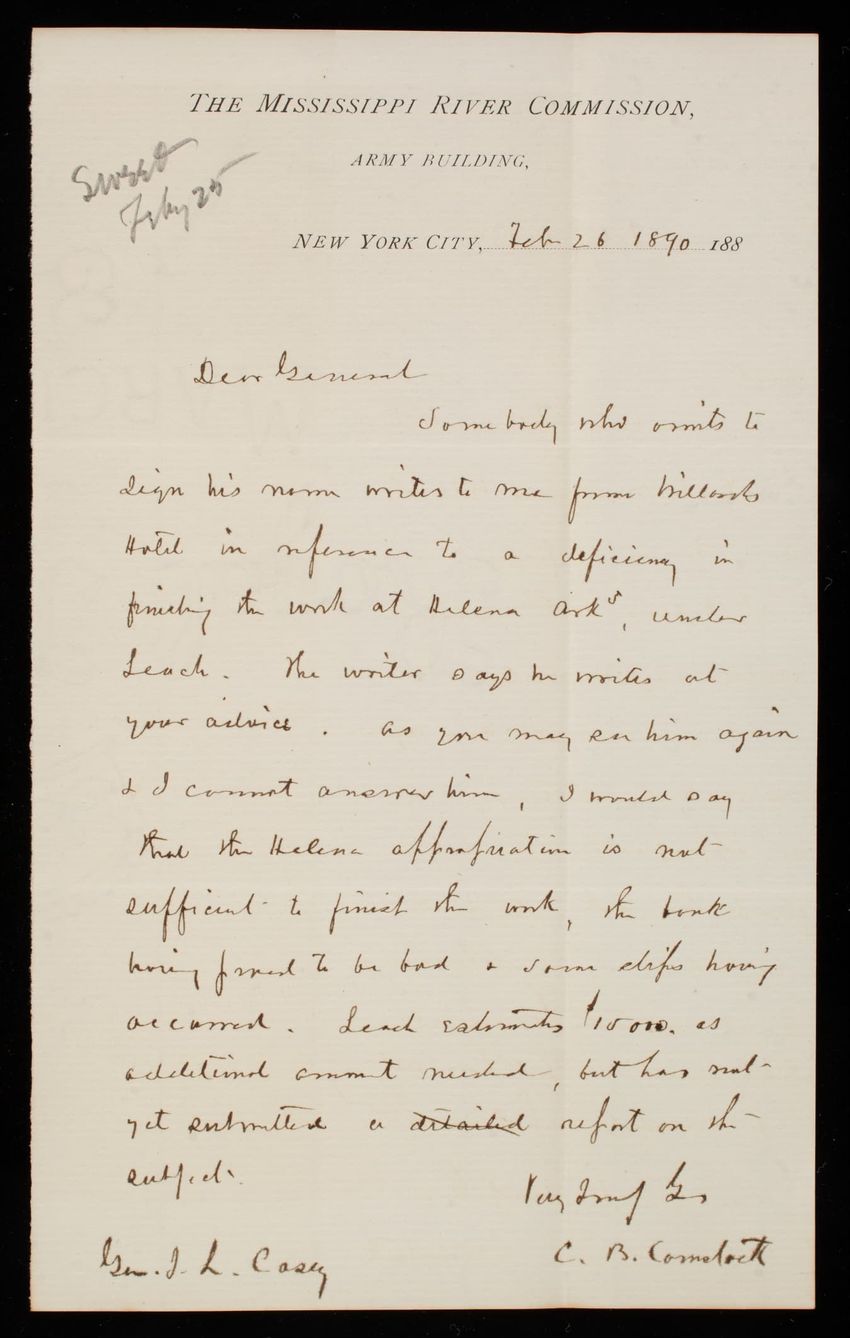 THE MISSISSIPPI RIVER COMMISSION,
ARMY BUILDING,
Feby 25
NEW YORK CITY, Feb 26 1890 188
Dear General
Somebody who omits to
sign his name writes to me from Willards
Hotel in reference to a deficiency in
finishing the work at Helena Arks, under
Leach. The writer says he writes at
your advice. As you may see him again
& I cannot answer him, I would say
that the Helena appropriation is not
sufficient to finish the work, the bank
having proved to be bad & some slips having
occurred. Leach estimates $15000. as
additional amount needed, but has not
yet submitted a detailed report on the
subject.
Very Truly Yrs
C. B. Comstock
Gen. T. L. Casey